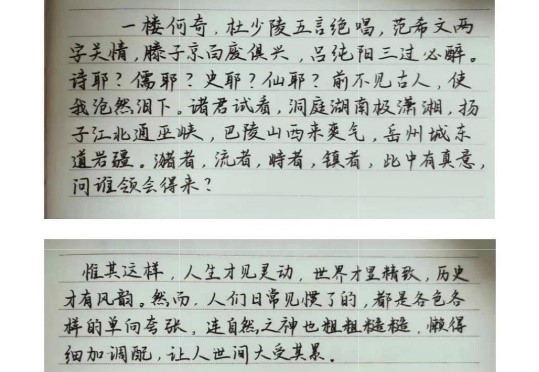 一楼何奇，杜少陵五言绝唱，范希文两
字关情，滕子京百废俱兴，吕纯阳三过必醉。
诗耶？儒耶？史耶？仙耶？前不见古人，使
我沧然泪下。诸君试看，洞庭湖南极潇湘，扬
子江北通巫峡，巴陵山西来爽气，岳州城东
道岩疆。潴者，流者，峙者，镇者，此中有真意，
问谁领会得来？
惟其这样，人生才见灵动，世界才显精致，历史
才有风韵。然而，人们日常见惯了的，都是各色各
样的单向夸张，连自然之神也粗粗糙糙，懒得
细加调配，让人世间大受其累。